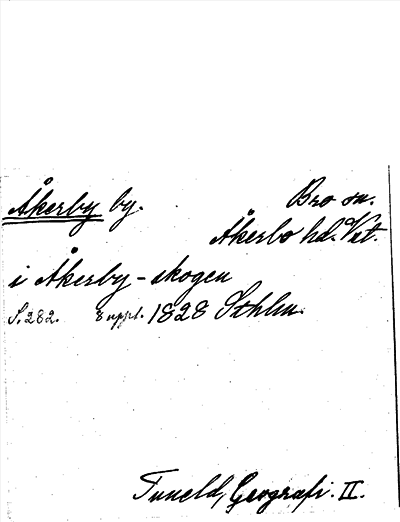 Åkerby by. Bro sn.
Åkerbo hd. Vst.
i Åkerby-skogen
S. 282. 8 uppl. 1828 Sthlm.
Tuneld, Geografi. II.